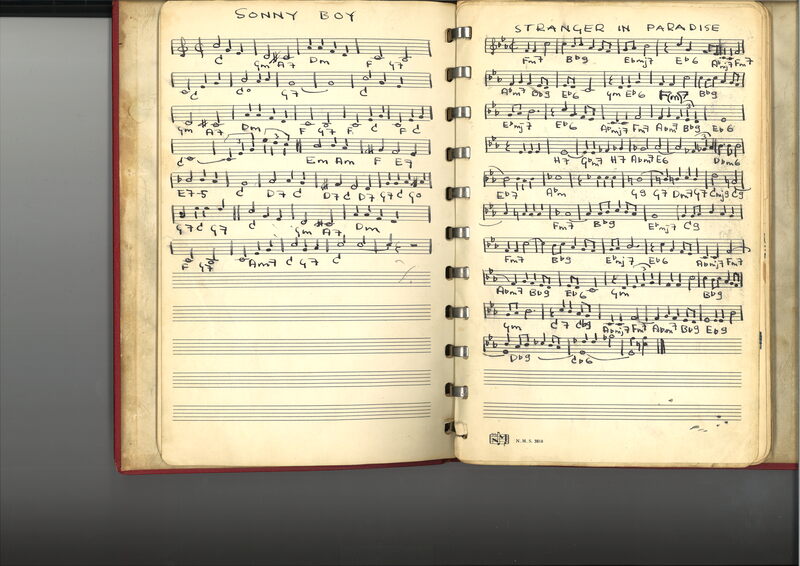 SONNY BOY
C Gm A7 Dm F G7
C C° G7 C
Gm A7 Dm F G7 F C F C
C Em Am F E7
E7-5 C D7 C D7 C D7 G7 C G°
G7 C G7 C Gm A7 Dm
F G7 C Am7 G7 C
STRANGER IN PARADISE
Fm7 Bb9 Ebmj7 Eb6 Abmj7 Fm7
Abm7 Bb9 Eb6 Gm Eb6 Fm7 Bb9
Ebmj7 Eb6 Abmj7 Fm7 Abm7 Bb9 Eb6
H7 G#m7 H7 Abm7 E6 Dbm6
Eb7 Abm G9 G7 Dm7 G7 Cmj9 C9
Fm7 Bb9 Ebmj7 C9
Fm7 Bb9 Ebmj7 Eb6 Abmj7 Fm7
Abm7 Bb9 Eb6 Gm Bb9
Gm C7 Cb9 Abmj7 Fm7 Abm7 Bb9 Eb9
Db9 Eb6
N. M. S. 3010